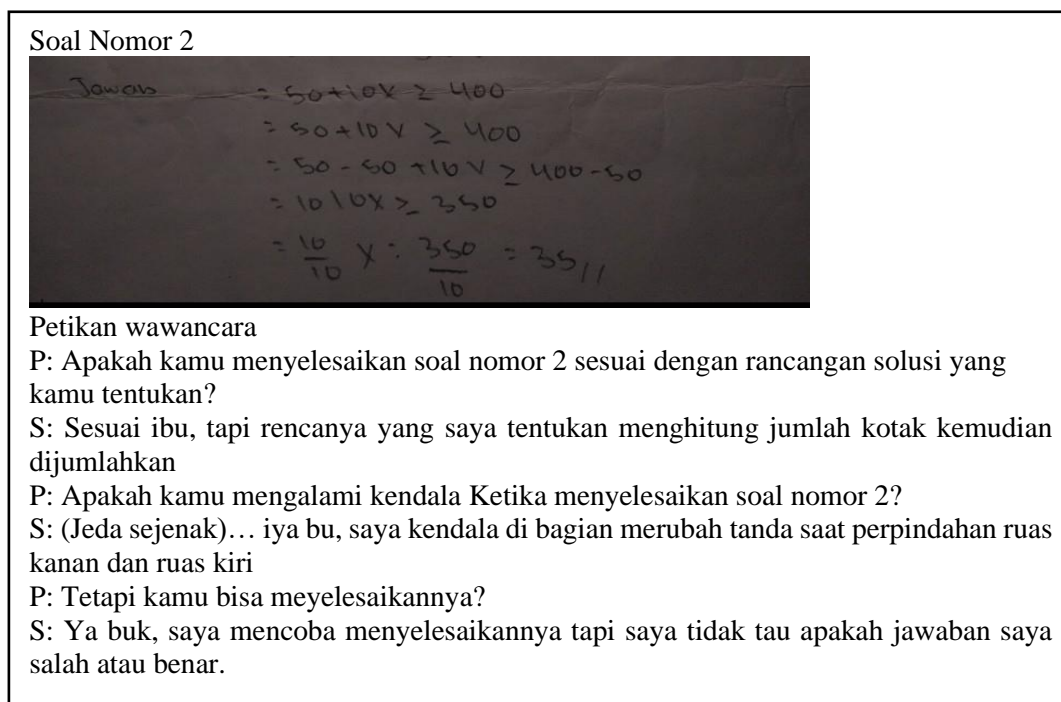 Soal Nomor 2
Jawab = 50+10x ≥ 400
= 50+10 V ≥ 400
= 50-50 +10 V ≥ 400-50
= 10 10x ≥ 350
= 10/10 x : 350/10 = 35 //
Petikan wawancara
P: Apakah kamu menyelesaikan soal nomor 2 sesuai dengan rancangan solusi yang
kamu tentukan?
S: Sesuai ibu, tapi rencanya yang saya tentukan menghitung jumlah kotak kemudian
dijumlahkan
P: Apakah kamu mengalami kendala Ketika menyelesaikan soal nomor 2?
S: (Jeda sejenak)… iya bu, saya kendala di bagian merubah tanda saat perpindahan ruas
kanan dan ruas kiri
P: Tetapi kamu bisa meyelesaikannya?
S: Ya buk, saya mencoba menyelesaikannya tapi saya tidak tau apakah jawaban saya
salah atau benar.